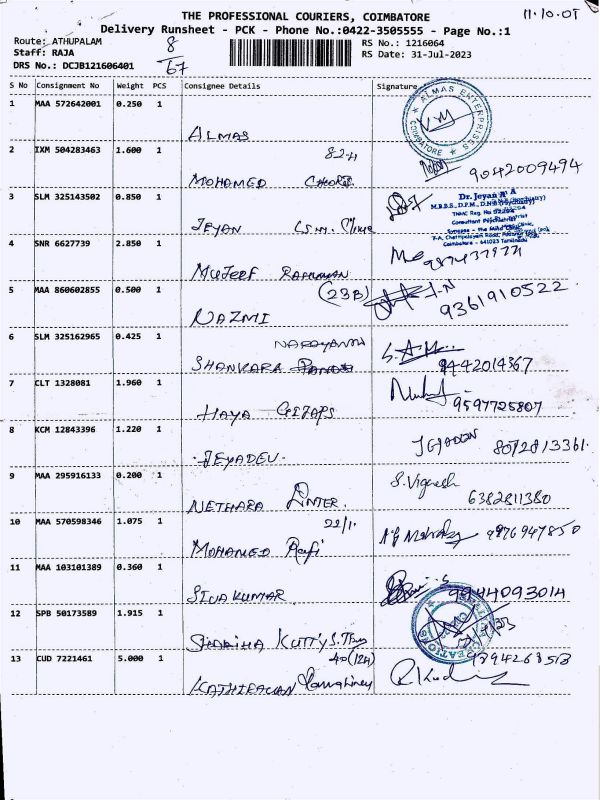 THE PROFESSIONAL COURIERS, COIMBATORE
11.10.01
Delivery Runsheet - PCK - Phone No.:0422-3505555 - Page No.:1
Route: ATHUPALAM
8
67
RS No.: 1216064
Staff: RAJA
RS Date: 31-Jul-2023
DRS No.: DCJB121606401
S No Consignment No Weight PCS Consignee Details Signature
1 MAA 572642001 0.250 1
ALMAS
ALMAS ENTERPRISES
COIMBATORE
2 IXM 504283463 1.600 1
MOHAMED
9042009494
3 SLM 325143502 0.850 1
JEYAN
Dr. Jeyan A A
Consultant Psychiatrist
Coimbatore - 641023 Tamilnadu
4 SNR 6627739 2.850 1
MUJEEF RAHUMAN
5 MAA 860602855 0.500 1
(23B)
NAZMI
9361910522
6 SLM 325162965 0.425 1
SHANKARA
9442014367
7 CLT 1328081 1.960 1
HAYA
9597725807
8 KCM 12843396 1.220 1
JEYADEV
8072813361
9 MAA 295916133 0.200 1
NETHARA
S. Vignesh
6382811380
10 MAA 570598346 1.075 1
22/1
MOHAMED Rafi
9976947850
11 MAA 103101389 0.360 1
SIVA KUMAR
9944093014
12 SPB 50173589 1.915 1
KUTTY
13 CUD 7221461 5.000 1
9894268513
KATHIRAVAN